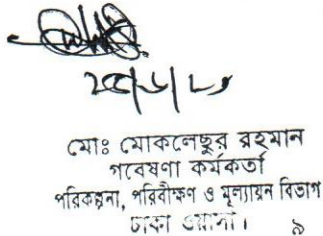 মোঃ মোকলেছুর রহমান
গবেষণা কর্মকর্তা
পরিকল্পনা, পরিবীক্ষণ ও মূল্যায়ন বিভাগ
ঢাকা ওয়াসা। ৯